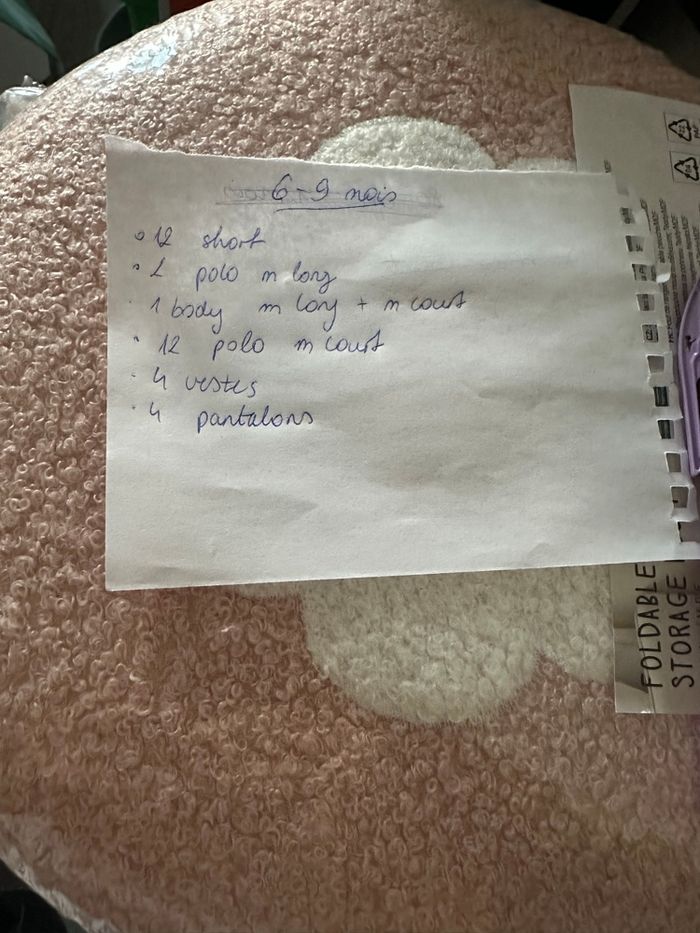 6-9 mois
12 short
2 polo m long
1 body m long + m court
12 polo m court
4 vestes
4 pantalons
FOLDABLE
STORAGE